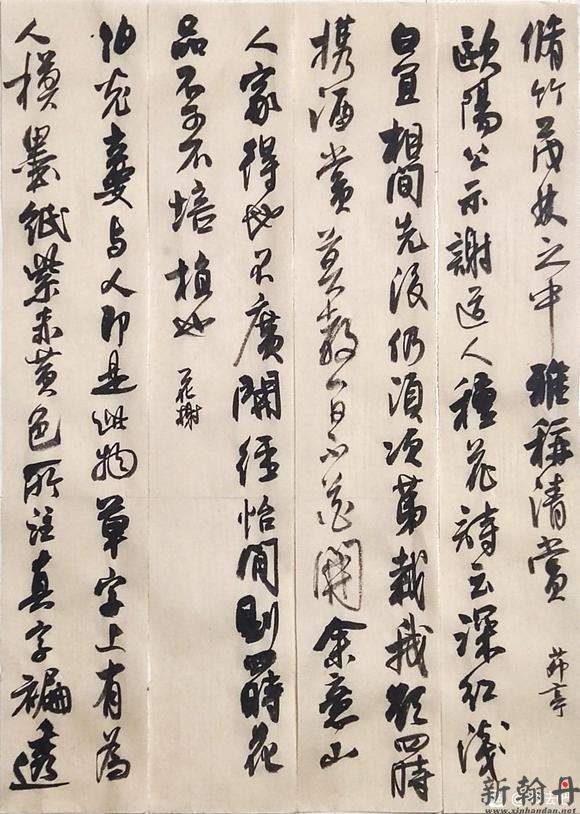 脩竹茂林之中雅稱清賞 茆亭
歐陽公示謝道人種花詩云深紅淺
白宜相間先後仍須次第栽我欲四時
携酒賞莫教一日不花開余意山
人家得地不廣開徑怡閒則四時花
品不可不培植也 花榭
伯充与人即是此物草字上有為
人模墨紙紫赤黄色所注真字褊透
新翰丹
www.xinhandan.net